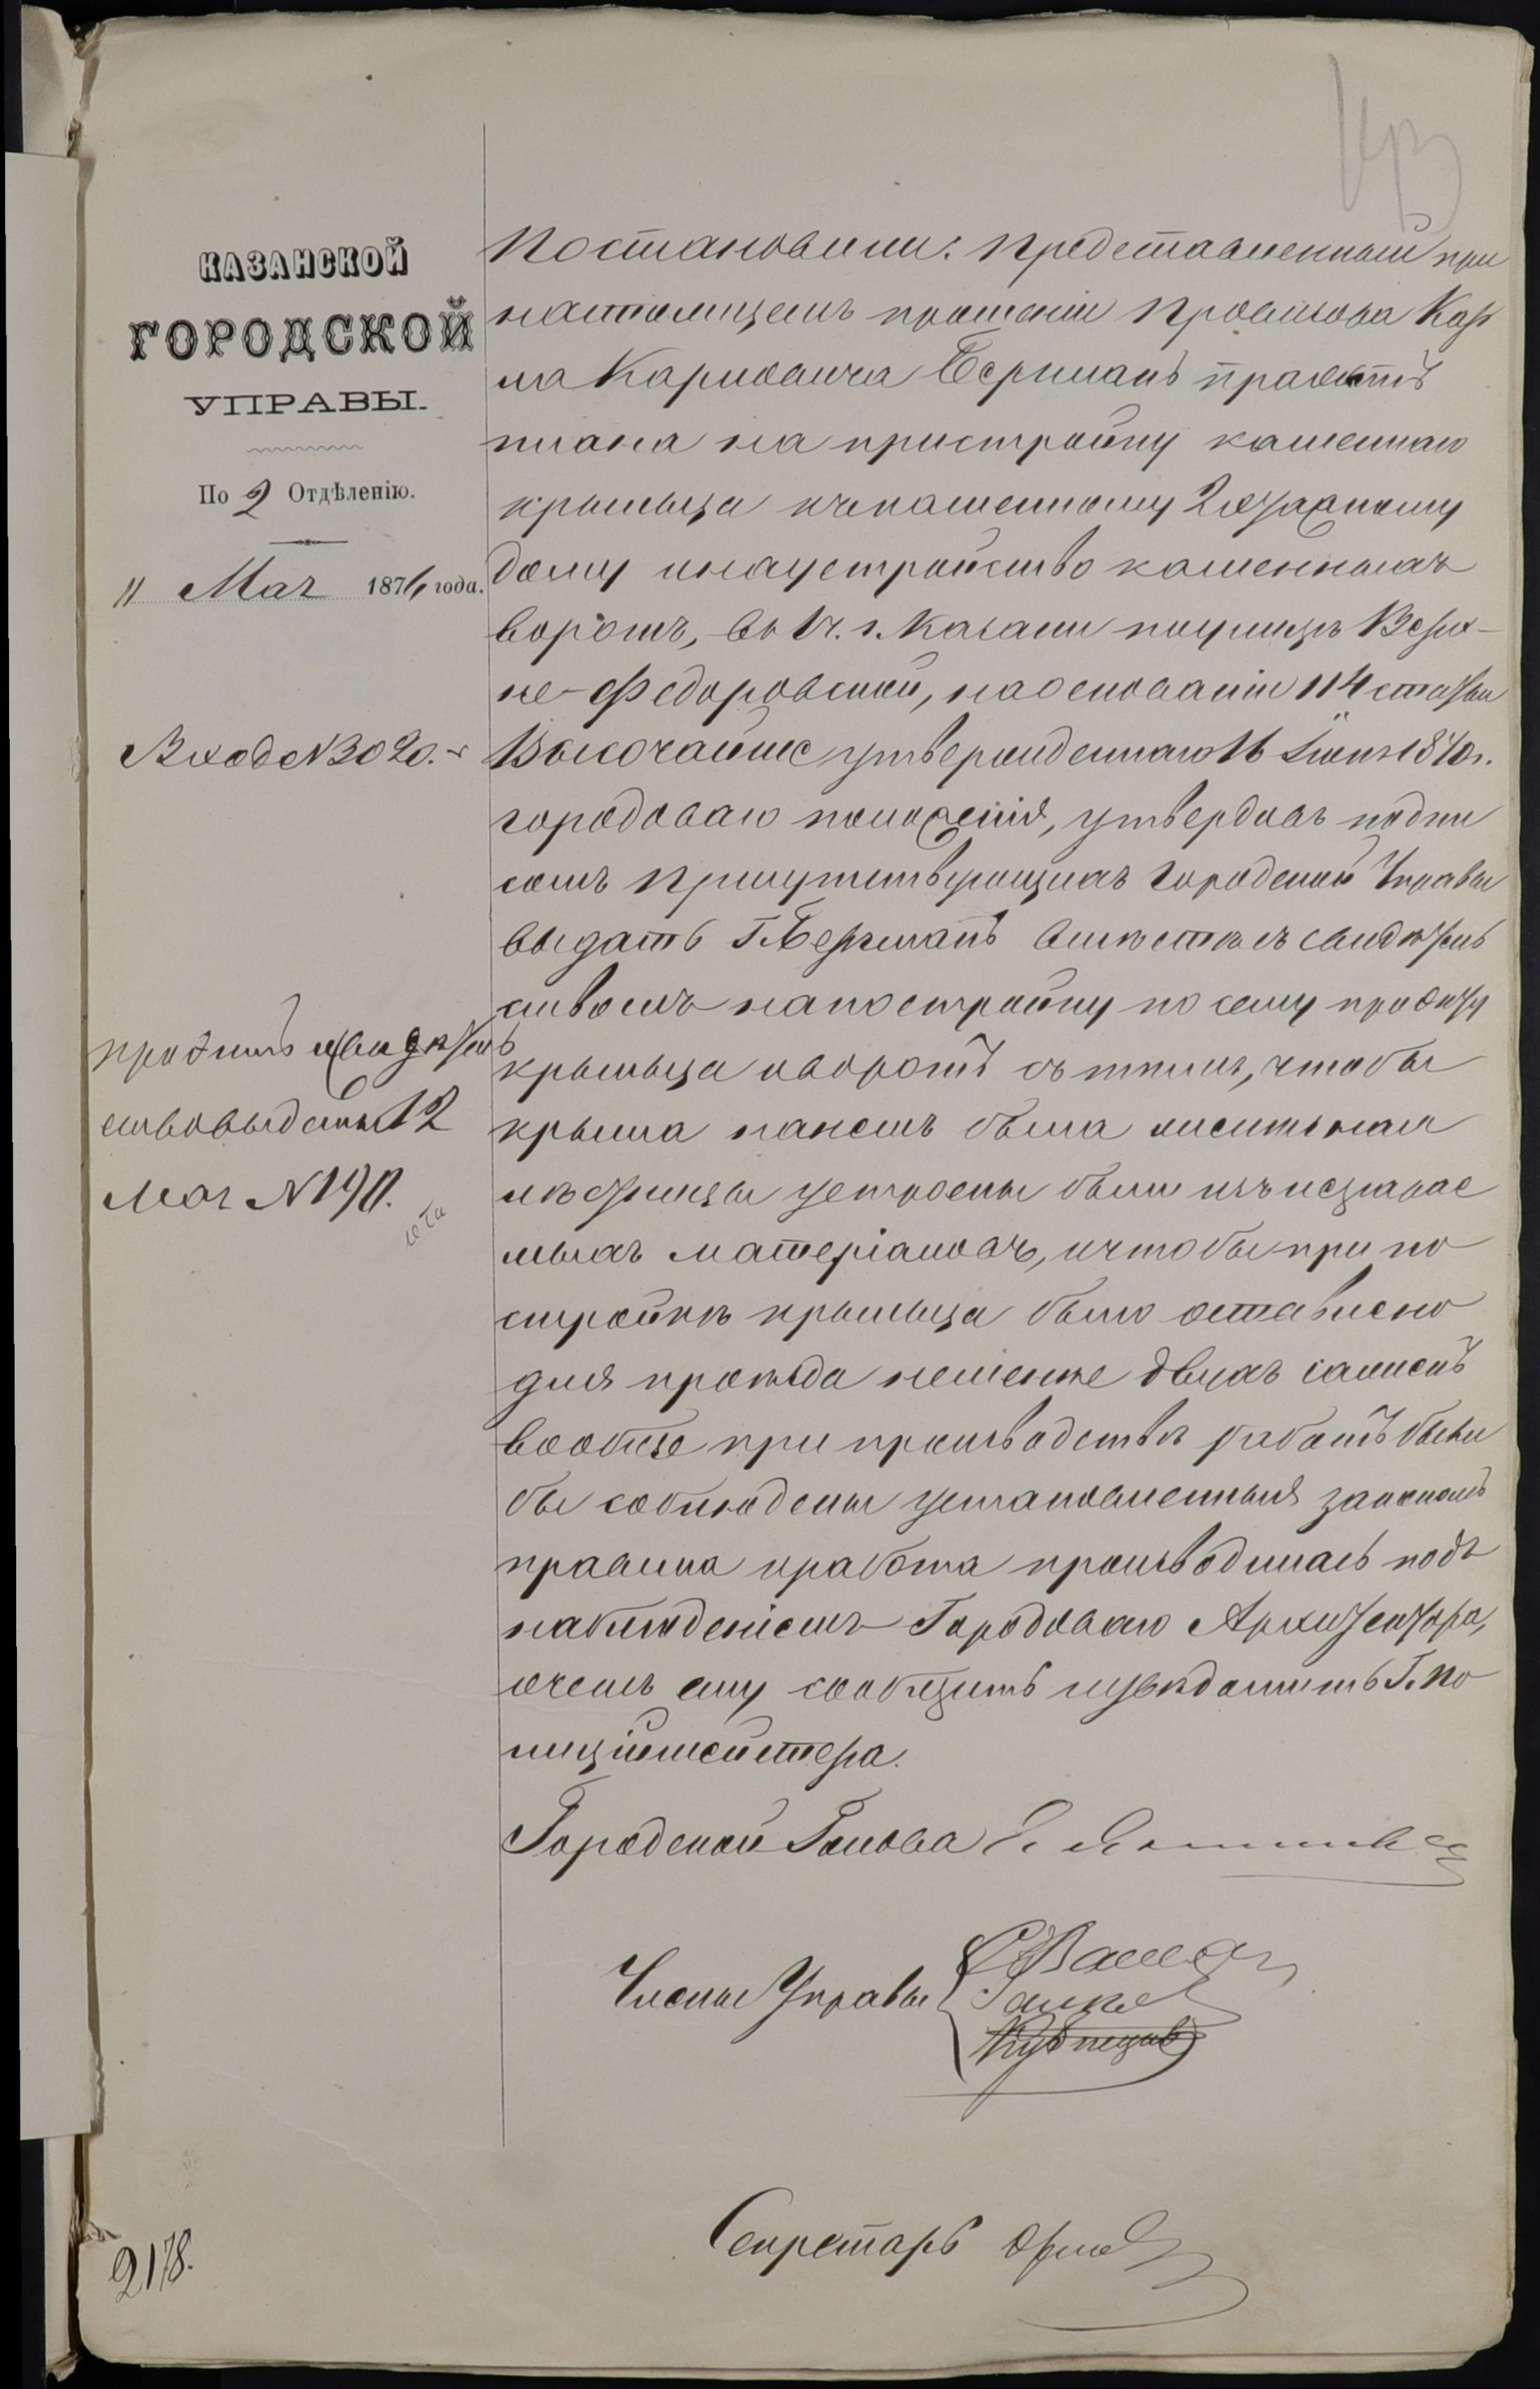 КАЗАНСКОЙ
ГОРОДСКОЙ
УПРАВЫ.
По 2 Отдѣленію.
" Мая 1876 года.
Вход № 3020.
Проэктъ и свидѣтель
ство выданы 12
мая № 190.
Постановили: представленный при
настоящемъ прошеніи Провизора Кар
ла Карловича Бергманъ проэктъ
плана на пристройку каменнаго
крыльца къ каменному 2хэтажному
дому и на устройство каменныхъ
воротъ, въ 1 ч. г. Казани по улицѣ Верх-
не-Федоровской, на основаніи 114 статьи
Высочайше утвержденнаго 16 Іюня 1870 г.
городоваго положенія, утвердивъ подпи
сомъ присутствующихъ Городской Управы
выдать Г. Бергманъ вмѣстѣ съ свидѣтель
ствомъ на постройку по сему проэкту
крыльца и воротъ съ тѣмъ, чтобы
крыша на немъ была желѣзная
лѣстницы устроены были изъ несгарае
мыхъ матеріаловъ, и чтобы при по
стройкѣ крыльца было оставлено
для проѣзда не менѣе двухъ саженъ
вообще при производствѣ работъ были
бы соблюдены установленныя закономъ
правила и работа производилась подъ
наблюденіемъ Городоваго Архитектора,
о чемъ ему сообщить и увѣдомить Г. По
лиціймейстера.
Городской Голова
Члены Управы
Кузнецов
Секретарь Орлов
2178.